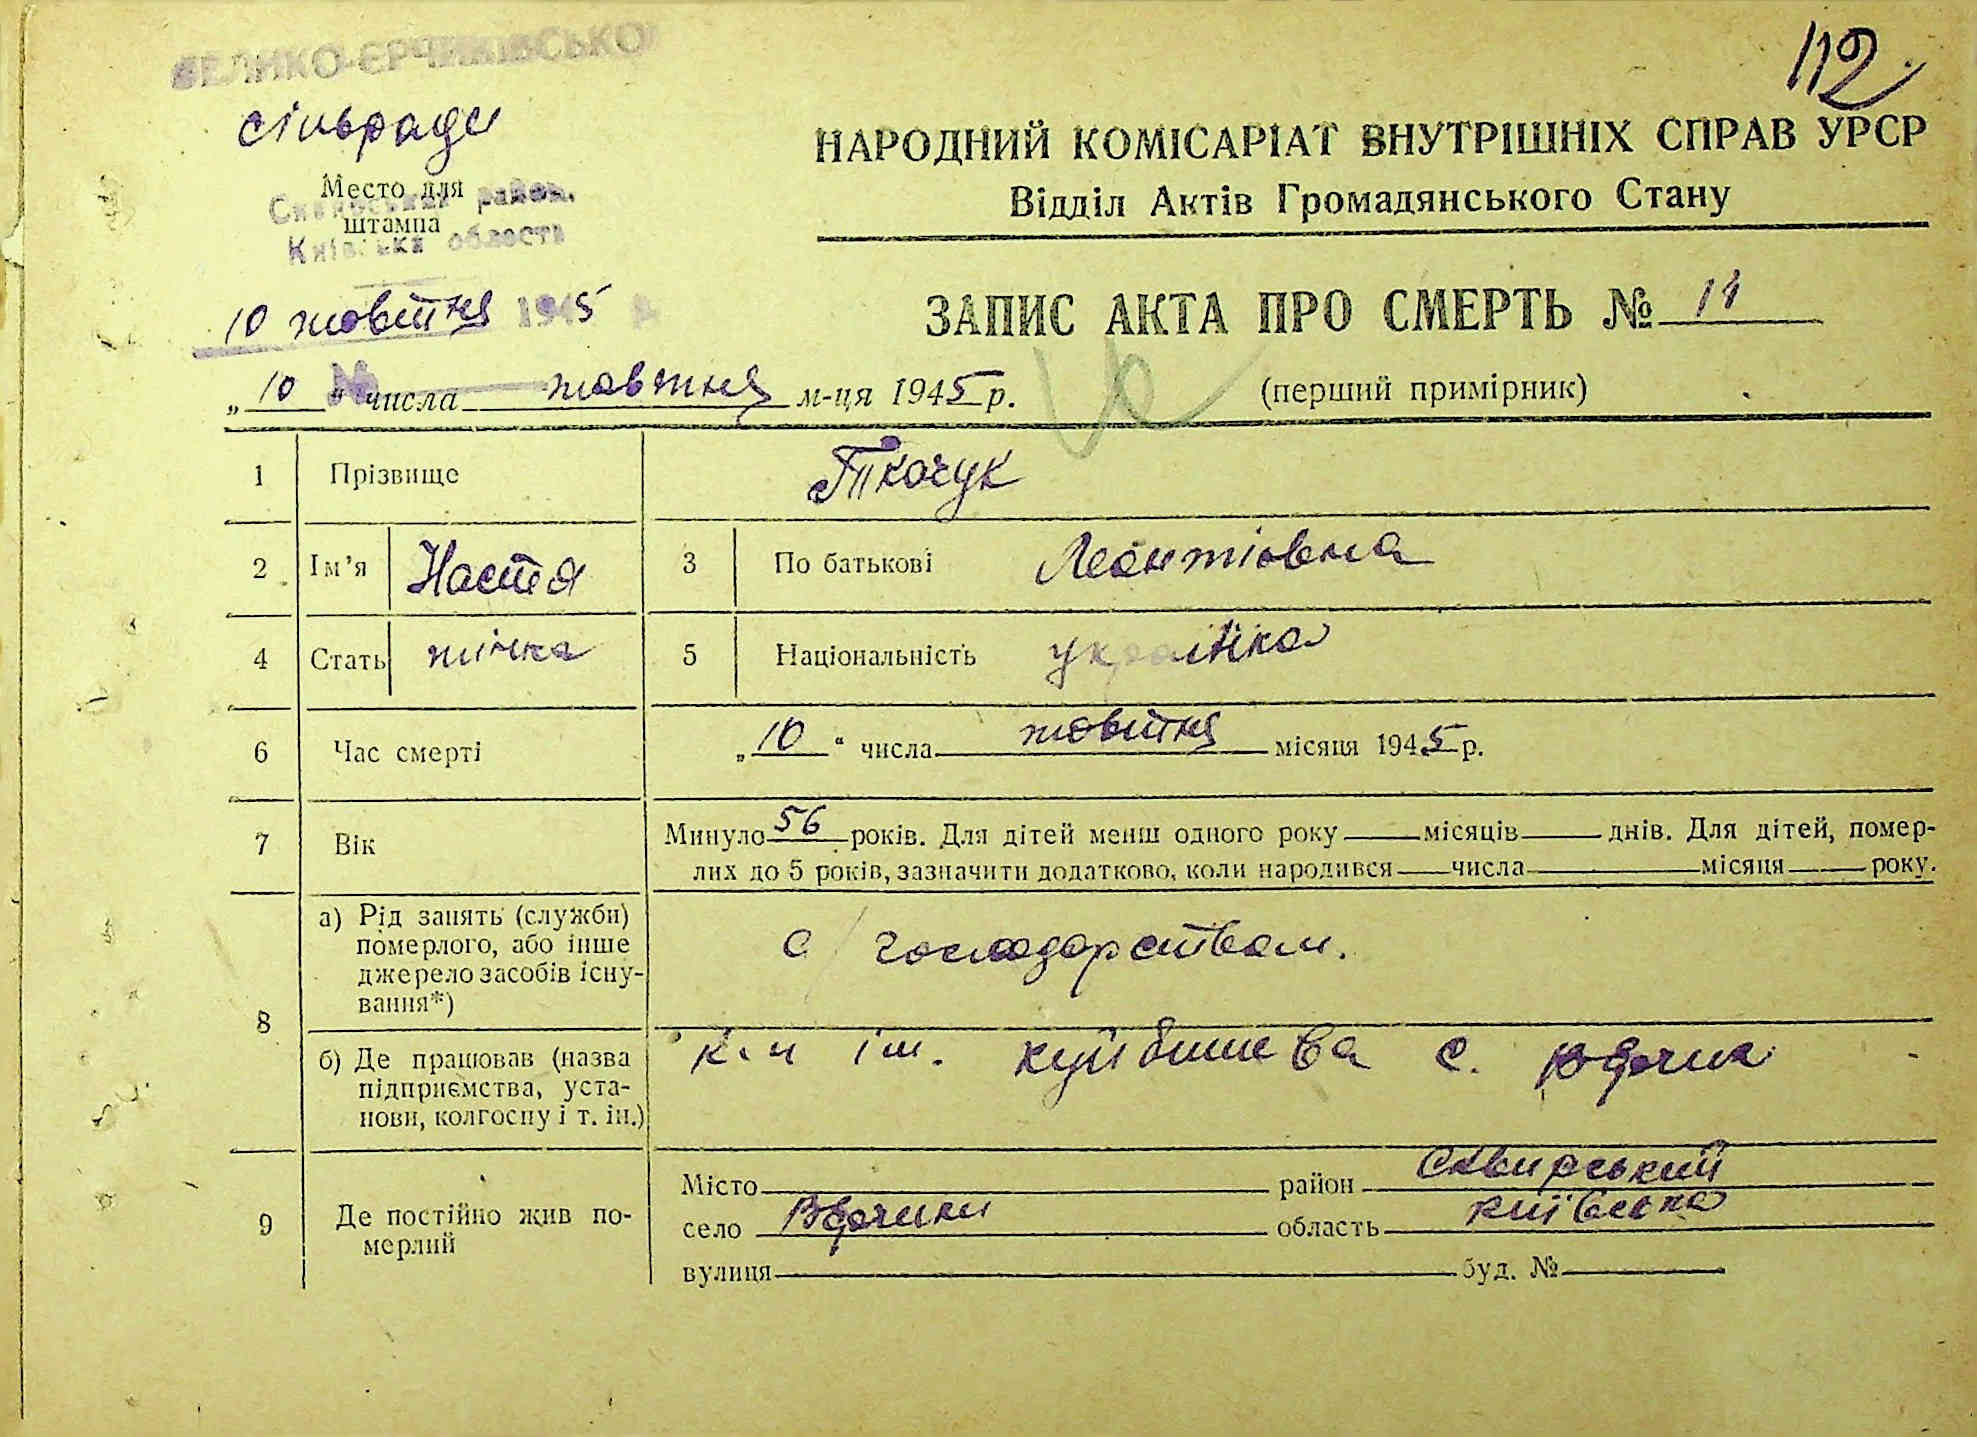 112
ВЕЛИКО-ЄРЧИКІВСЬКО
сільради
Место для
штампа
район.
Київська область
10 жовтня 1945
НАРОДНИЙ КОМІСАРІАТ ВНУТРІШНІХ СПРАВ УРСР
Відділ Актів Громадянського Стану
ЗАПИС АКТА ПРО СМЕРТЬ №
„10" числа жовтня м-ця 1945 р.
(перший примірник)
1 Прізвище Ткачук
2 Ім'я Настя 3 По батькові Леонтіовна
4 Стать жінка 5 Національність українка
6 Час смерті „10" числа жовтня місяця 1945 р.
7 Вік Минуло 56 років. Для дітей менш одного року місяців днів. Для дітей, помер-
лих до 5 років, зазначити додатково, коли народився числа місяця року.
8 а) Рід занять (служби)
померлого, або інше
джерело засобів існу-
вання*)
с/господарством.
б) Де працював (назва
підприємства, уста-
нови, колгоспу і т. ін.)
к-п ім. куйбишева с.
9 Де постійно жив по-
мерлий
Місто район Сквирський
село Вдачики область київська
вулиця буд. №